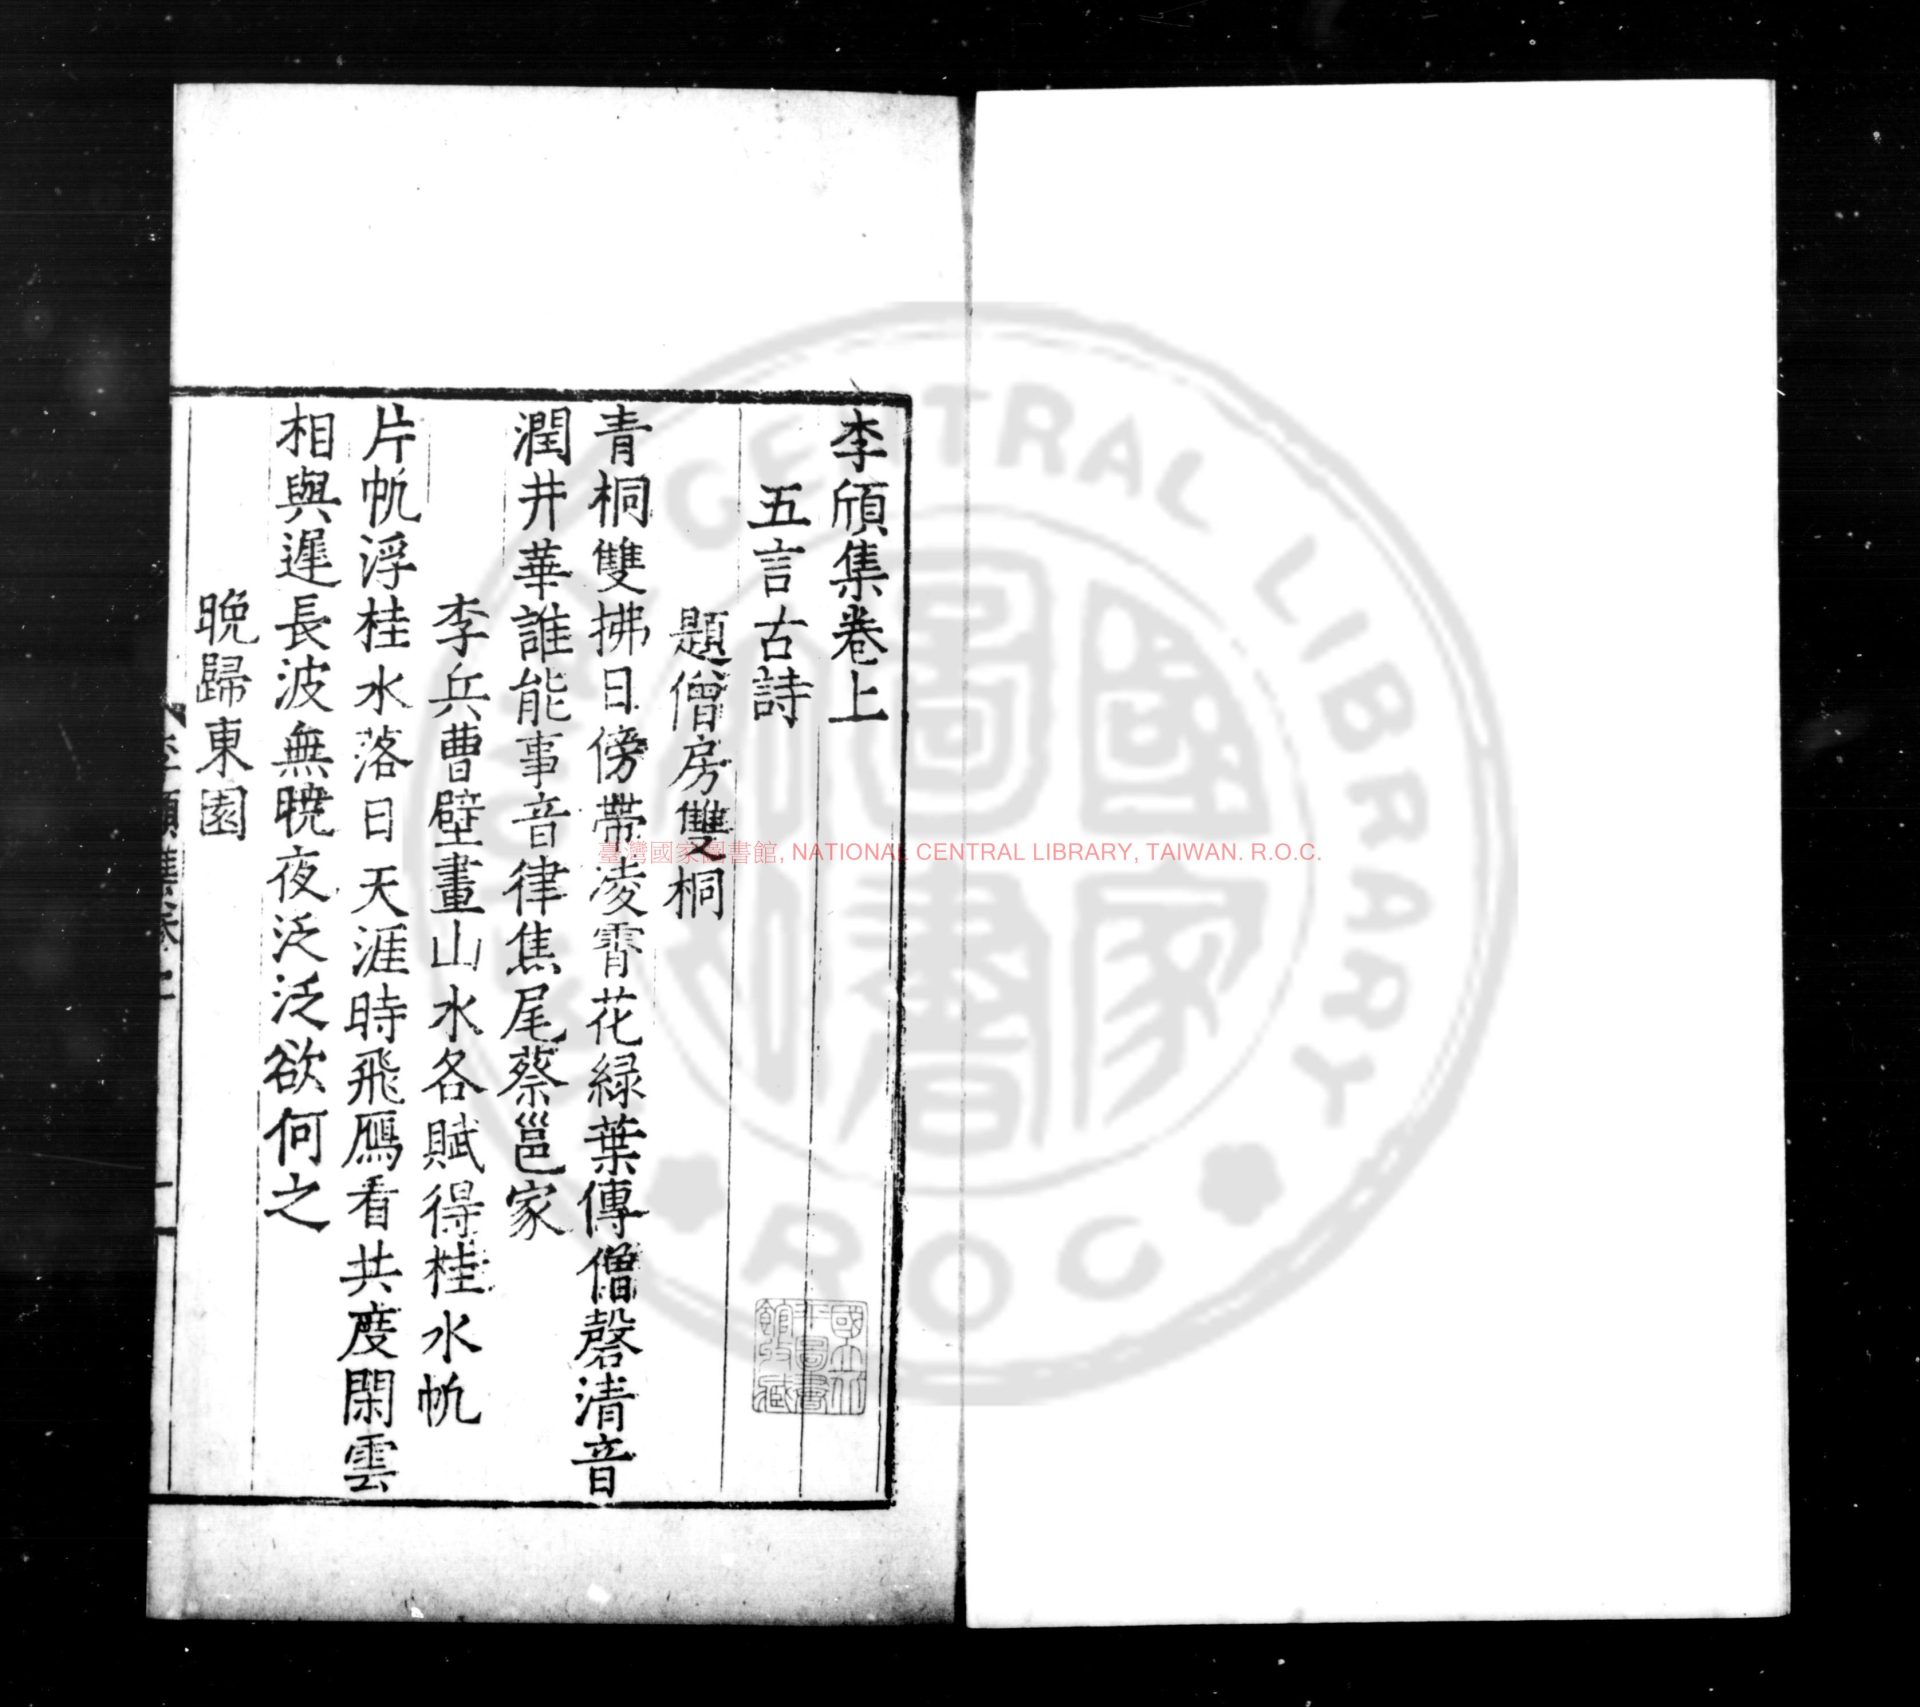 李頎集卷上
五言古詩
題僧房雙桐
青桐雙拂日傍帶凌霄花緑葉傳僧磬清音
潤井華誰能事音律焦尾蔡邕家
李兵曹壁畫山水各賦得桂水帆
片帆浮桂水落日天涯時飛鴈看共度閑雲
相與遲長波無曉夜泛泛欲何之
晚歸東園
國立北
平圖書
館收藏
臺灣國家圖書館, NATIONAL CENTRAL LIBRARY, TAIWAN. R.O.C.
CENTRAL LIBRARY
R O C
國家
圖書